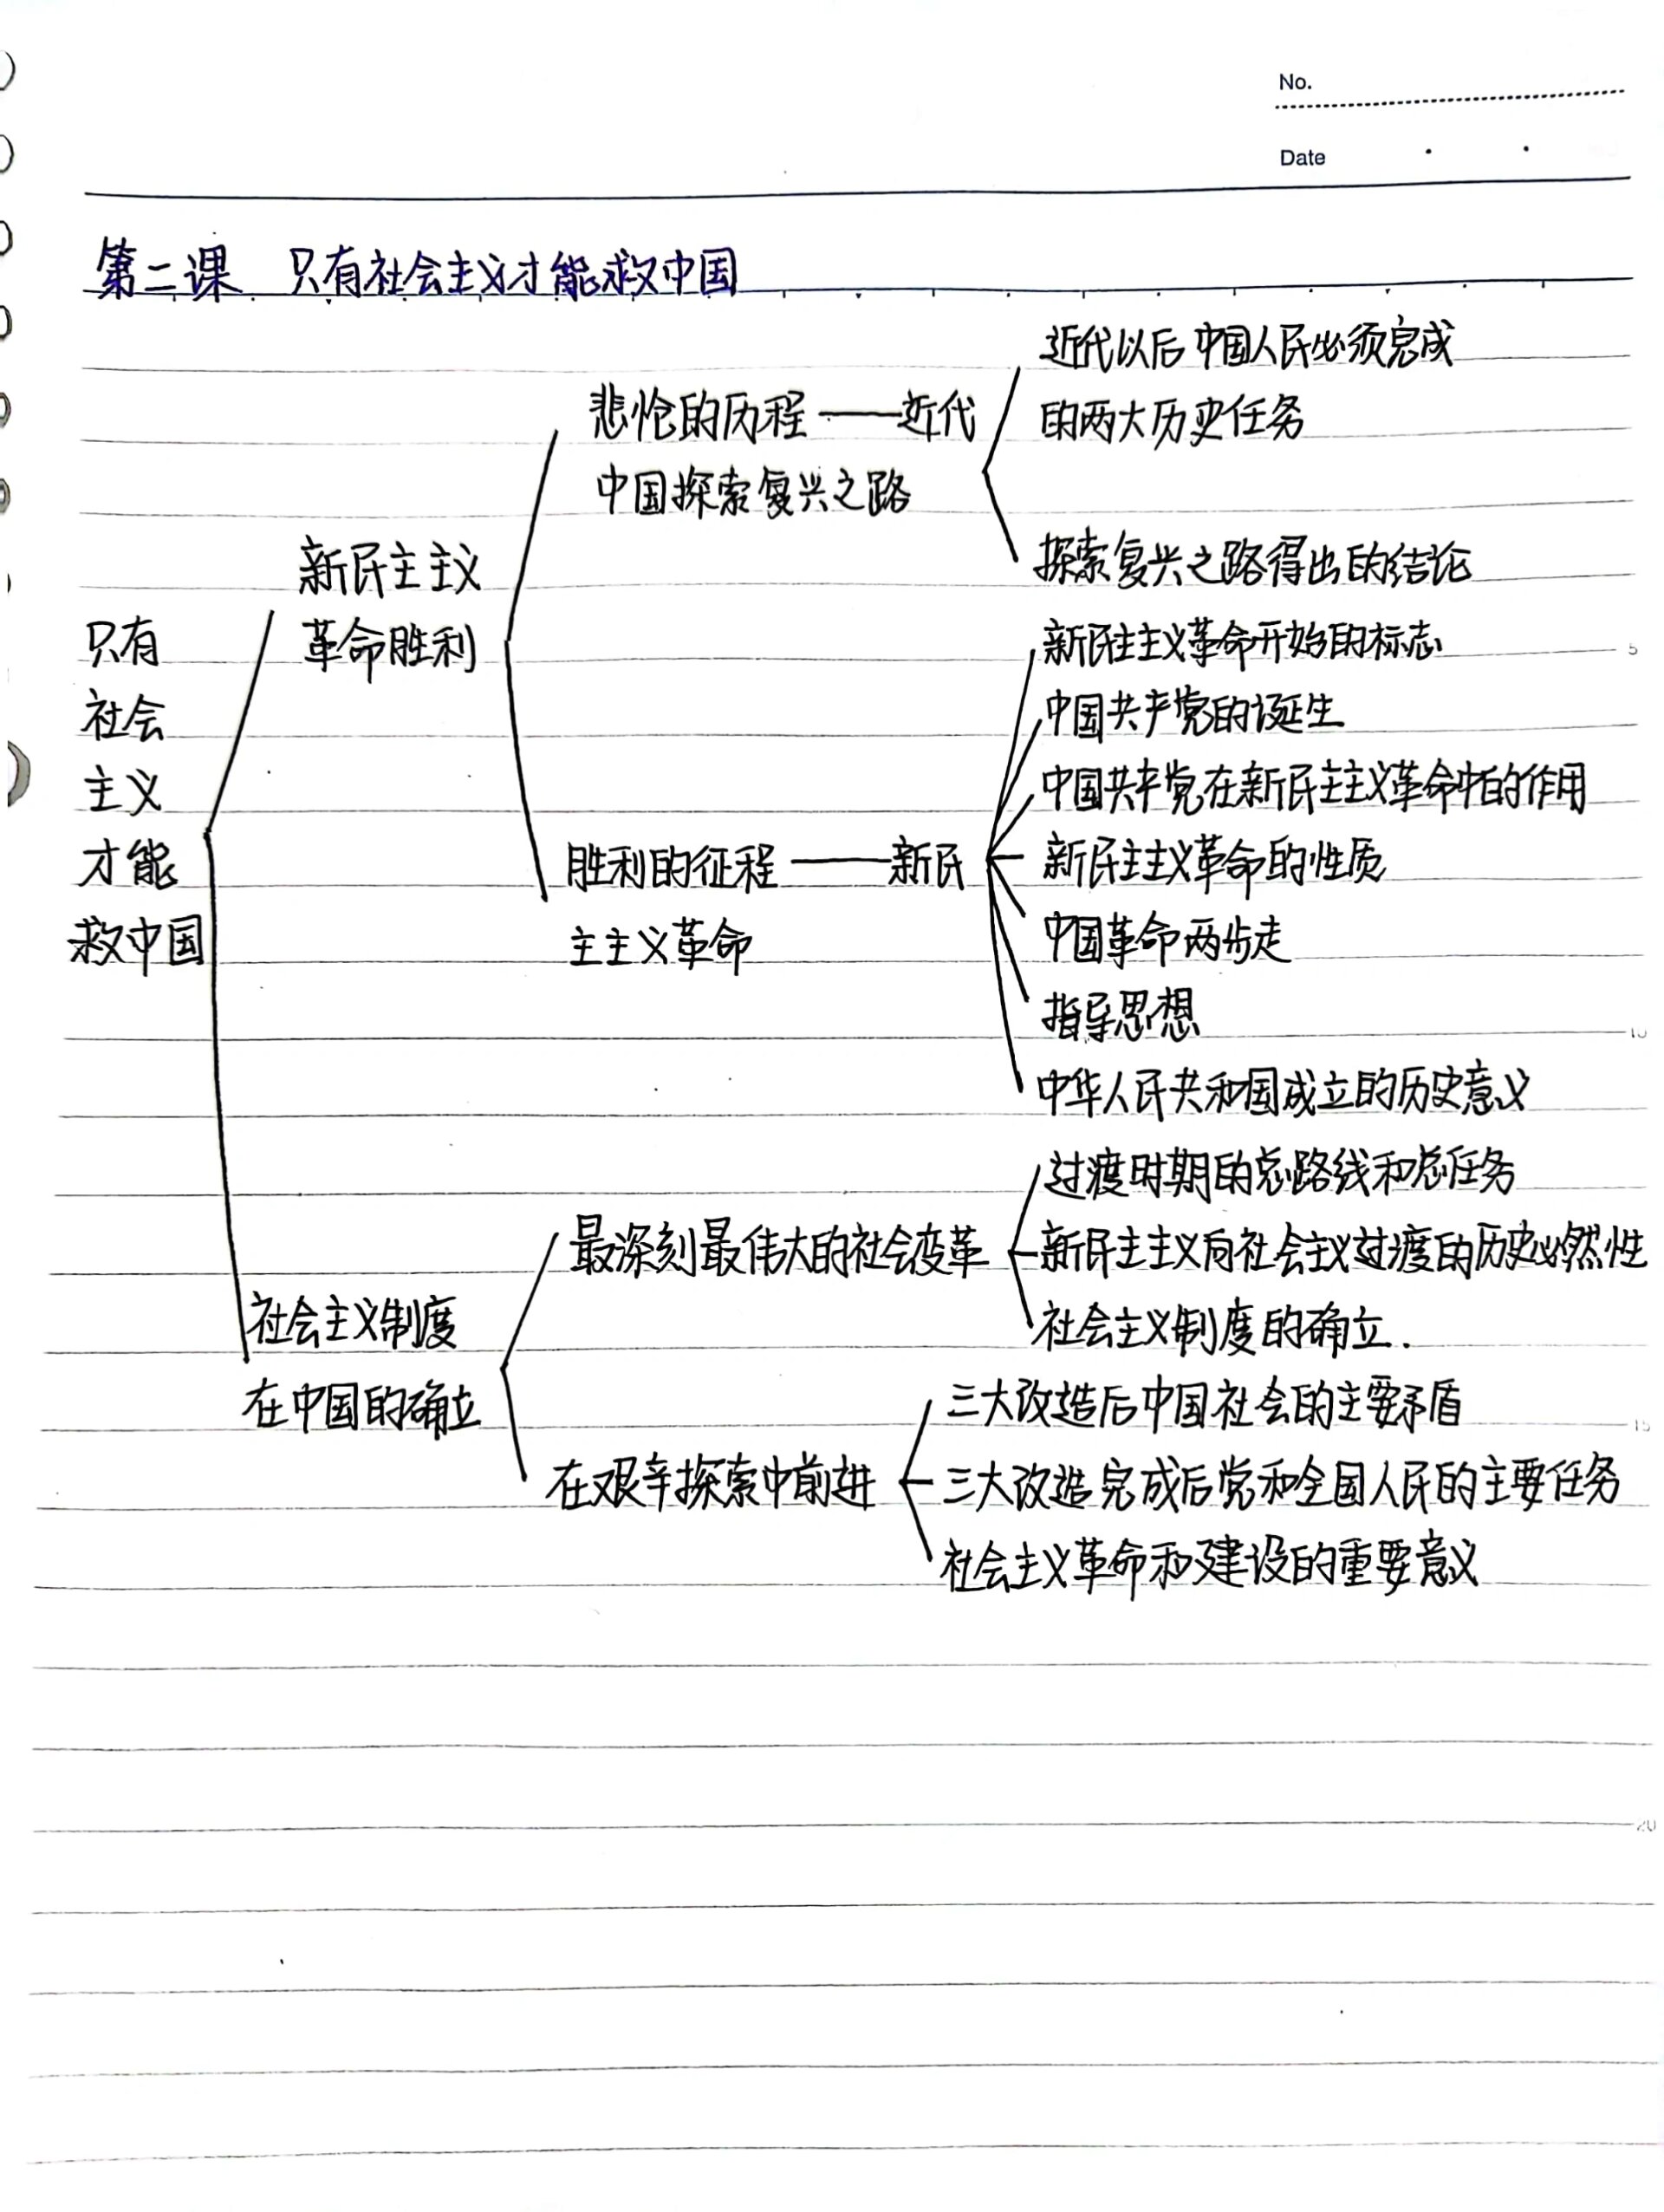 No.
Date
第二课 只有社会主义才能救中国
近代以后中国人民必须完成
的两大历史任务
悲怆的历程——近代
中国探索复兴之路
探索复兴之路得出的结论
新民主主义
革命胜利
新民主主义革命开始的标志
中国共产党的诞生
中国共产党在新民主主义革命中的作用
胜利的征程——新民
主主义革命
新民主主义革命的性质
中国革命两步走
指导思想
中华人民共和国成立的历史意义
只有
社会
主义
才能
救中国
过渡时期的总路线和总任务
最深刻最伟大的社会变革
新民主主义向社会主义过渡的历史必然性
社会主义制度的确立.
社会主义制度
在中国的确立
三大改造后中国社会的主要矛盾
在艰辛探索中前进
三大改造完成后党和全国人民的主要任务
社会主义革命和建设的重要意义
5
10
15
20